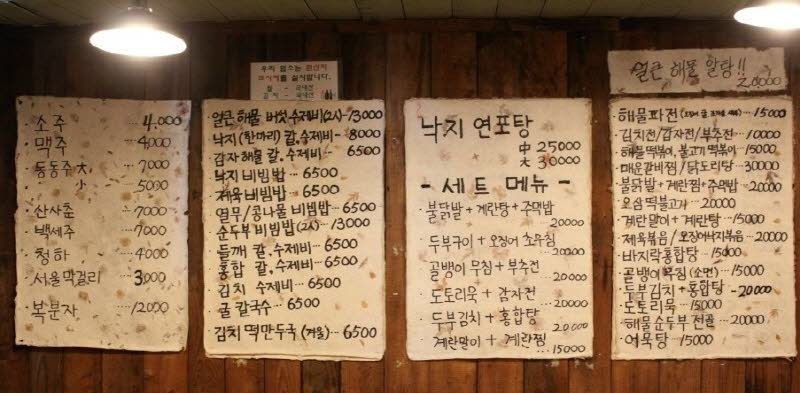 우리 업소는 원산지
표시제를 실시합니다.
쌀 - 국내산
김치 - 국내산
소주 ... 4,000
맥주 4,000
동동주 大 ... 7000
小 5000
산사춘 ... 7000
백세주 ... 7000
청하 ... 4000
서울막걸리 ... 3,000
복분자 ... 12000
·얼큰 해물 버섯수제비(2人)··13000
낙지(한마리) 칼,수제비·· 8000
감자 해물 칼,수제비·· 6500
낙지 비빔밥
제육 비빔밥
열무/콩나물 비빔밥·· 6500
순두부 비빔밥(2人)··13000
들깨 칼,수제비··· 6500
홍합 칼,수제비·· 6500
김치 수제비·· 6500
굴 칼국수··· 6500
·김치 떡만두국 (겨울)·· 6500
낙지 연포탕
中 25000
大 30000
- 세트 메뉴 -
·불닭발+계란탕+주먹밥
20000
·두부구이+오징어 초무침
20000
·골뱅이 무침+부추전
20000
·도토리묵+감자전
...20000
·두부김치+홍합탕
20000
·계란말이+계란찜
...15000
얼큰 해물 알탕!!
20000
·해물파전 ··· 15000
·김치전/감자전/부추전··· 10000
·해물떡볶이, 불고기 떡볶이··· 15000
·매운갈비찜/닭도리탕··· 30000
·불닭발+계란찜+주먹밥··20000
·오삼떡불고기·· 20000
·계란말이+계란탕··15000
·제육볶음/오징어낙지볶음··20000
·바지락홍합탕··· 15000
·골뱅이무침(소면)··· 15000
·두부김치+홍합탕 -20000
·도토리묵··· 15000
·해물순두부전골··· 20000
·어묵탕··· 15000